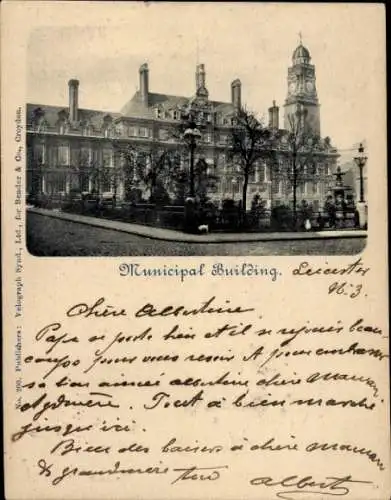 Municipal Building. Leicester
Chère Albertine
Papa se porte bien et il se rejouis beau-
coup pour vous revoir et pour embrasser
sa bien aimée albertine chère maman
et gdmère. Tout à bien marché
jusqu'ici.
Bien des baisers à chère maman
& grandmère Albert
No. 290. Publishers: Velograph Synd., Ltd., for Bender & Co., Croydon.